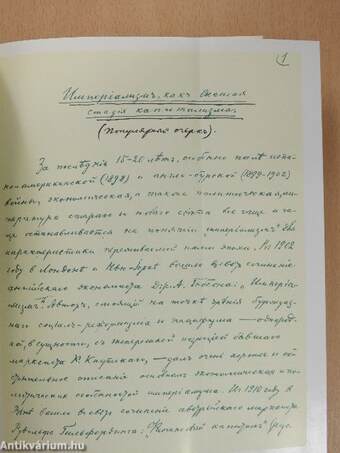 1
Имперiализмъ, какъ высшая
стадiя капитализма.
(Популярный очеркъ).
За послѣднiя 15-20 лѣтъ, особенно послѣ испа-
но-американской (1898) и англо-бурской (1899-1902)
войны, экономическая, а также политическая, ли-
тература стараго и новаго свѣта все чаще и ча-
ще останавливается на понятiи „имперiализмъ" для
характеристики переживаемой нами эпохи. Въ 1902
году въ Лондонѣ и Нью-Iоркѣ вышло въ свѣтъ сочиненiе
англiйскаго экономиста Дж. А. Гобсона: „Имперiа-
лизмъ". Авторъ, стоящiй на точкѣ зрѣнiя буржуаз-
наго соцiалъ-реформизма и пацифизма — однород-
ной, въ сущности, съ теперешней позицiей бывшаго
марксиста К. Каутскаго, — далъ очень хорошее и об-
стоятельное описанiе основныхъ экономическихъ и по-
литическихъ особенностей имперiализма. Въ 1910 году въ
Вѣнѣ вышло въ свѣтъ сочиненiе австрiйскаго марксиста
Рудольфа Гильфердинга: „Финансовый капиталъ" (рус.
Antikvárium.hu
antikvarium.hu